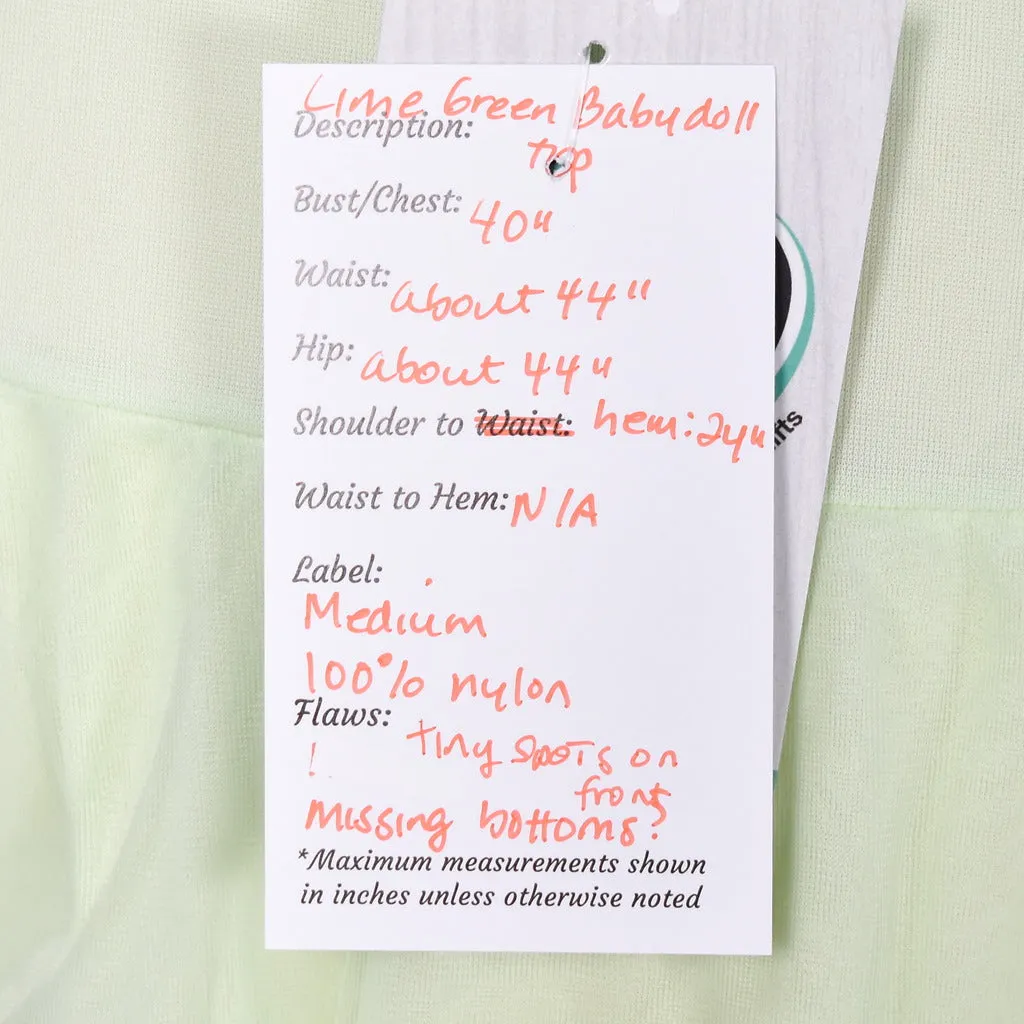 Lime Green Babydoll
Description:
top
Bust/Chest: 40"
Waist: about 44"
Hip: about 44"
Shoulder to Waist: hem: 24"
Waist to Hem: N/A
Label:
Medium
100% nylon
Flaws:
! tiny spots on
front
missing bottoms?
*Maximum measurements shown
in inches unless otherwise noted